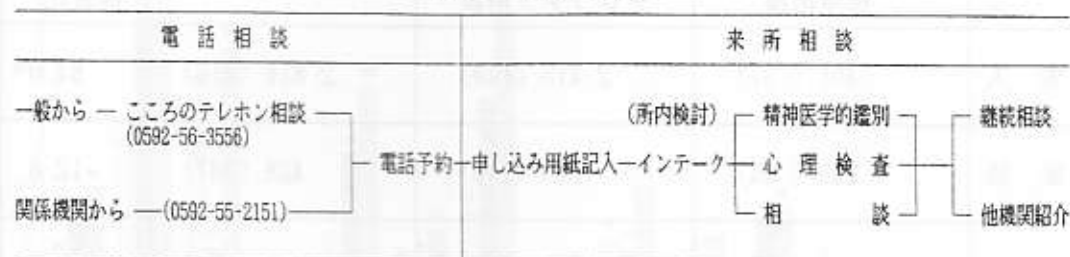 電話相談
来所相談
一般から ― こころのテレホン相談
(0592-56-3556)
関係機関から ―(0592-55-2151)
電話予約―申し込み用紙記入―インテーク
(所内検討)
精神医学的鑑別
心理検査
相談
継続相談
他機関紹介